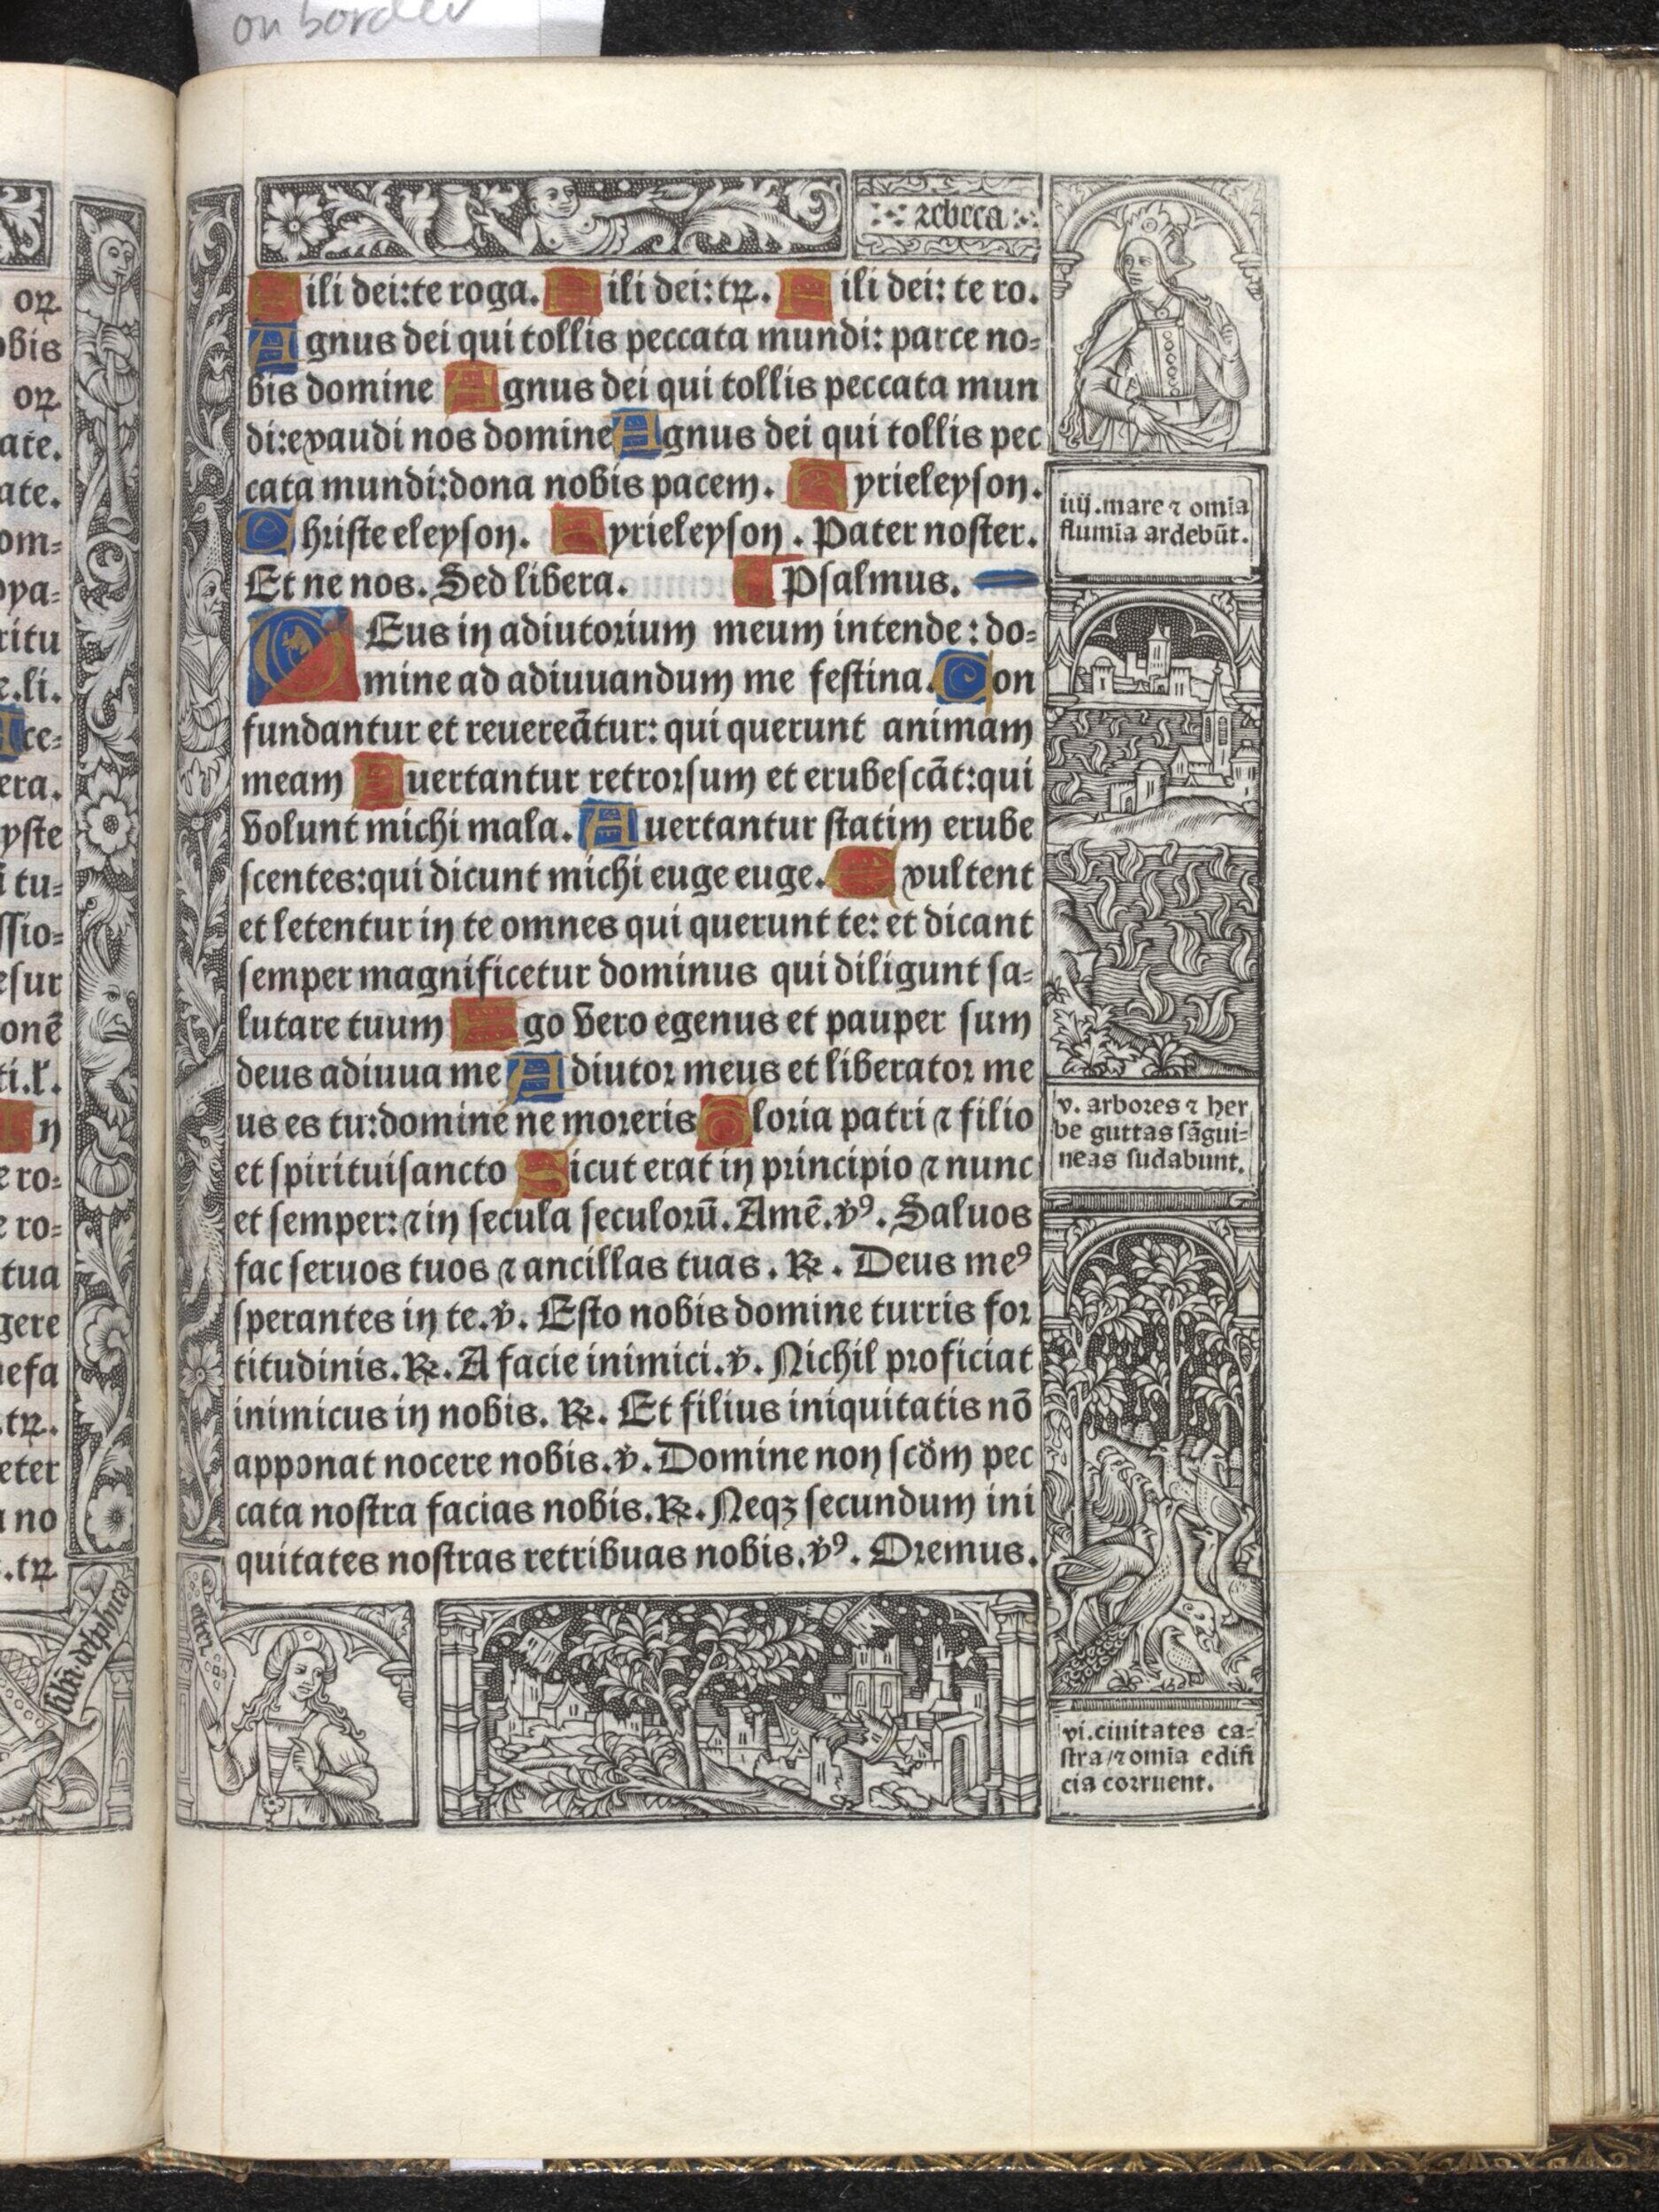 on border
rebeca
Fili dei: te roga. Fili dei: tr. Fili dei: te ro.
Agnus dei qui tollis peccata mundi: parce no=
bis domine Agnus dei qui tollis peccata mun
di: exaudi nos domine Agnus dei qui tollis pec
cata mundi: dona nobis pacem. Kyrieleyson.
Christe eleyson. Kyrieleyson. Pater noster.
Et ne nos. Sed libera. Psalmus.
DEus in adiutorium meum intende: do=
mine ad adiuuandum me festina. Con
fundantur et reuereãtur: qui querunt animam
meam Auertantur retrorsum et erubescãt: qui
volunt michi mala. Auertantur statim erube
scentes: qui dicunt michi euge euge. Exultent
et letentur in te omnes qui querunt te: et dicant
semper magnificetur dominus qui diligunt sa=
lutare tuum Ego vero egenus et pauper sum
deus adiuua me Adiutor meus et liberator me
us es tu: domine ne moreris Gloria patri ⁊ filio
et spirituisancto Sicut erat in principio ⁊ nunc
et semper: ⁊ in secula seculorũ. Amẽ. ℣⁹. Saluos
fac seruos tuos ⁊ ancillas tuas. ℟. Deus me⁹
sperantes in te. ℣. Esto nobis domine turris for
titudinis. ℟. A facie inimici. ℣. Nichil proficiat
inimicus in nobis. ℟. Et filius iniquitatis nõ
apponat nocere nobis. ℣. Domine non scd̃m pec
cata nostra facias nobis. ℟. Neqꝫ secundum ini
quitates nostras retribuas nobis. ℣⁹. Oremus.
iiij. mare ⁊ omia
flumia ardebũt.
v. arbores ⁊ her
be guttas sãgui=
neas sudabunt.
vi. ciuitates ca=
stra/ ⁊ omia edifi
cia corruent.
or
obis
or
ate.
ate.
om=
opa=
ritu
e. li.
Ace=
era.
yste
i tu=
ssio=
esur
onẽ
ti. l'.
In
e ro=
e ro=
tua
gere
nefa
. tr.
eter
a no
. tr
sibi. delphica